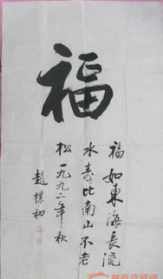 福
福如東海長流
水壽比南山不老
松一九九二年秋
趙樸初